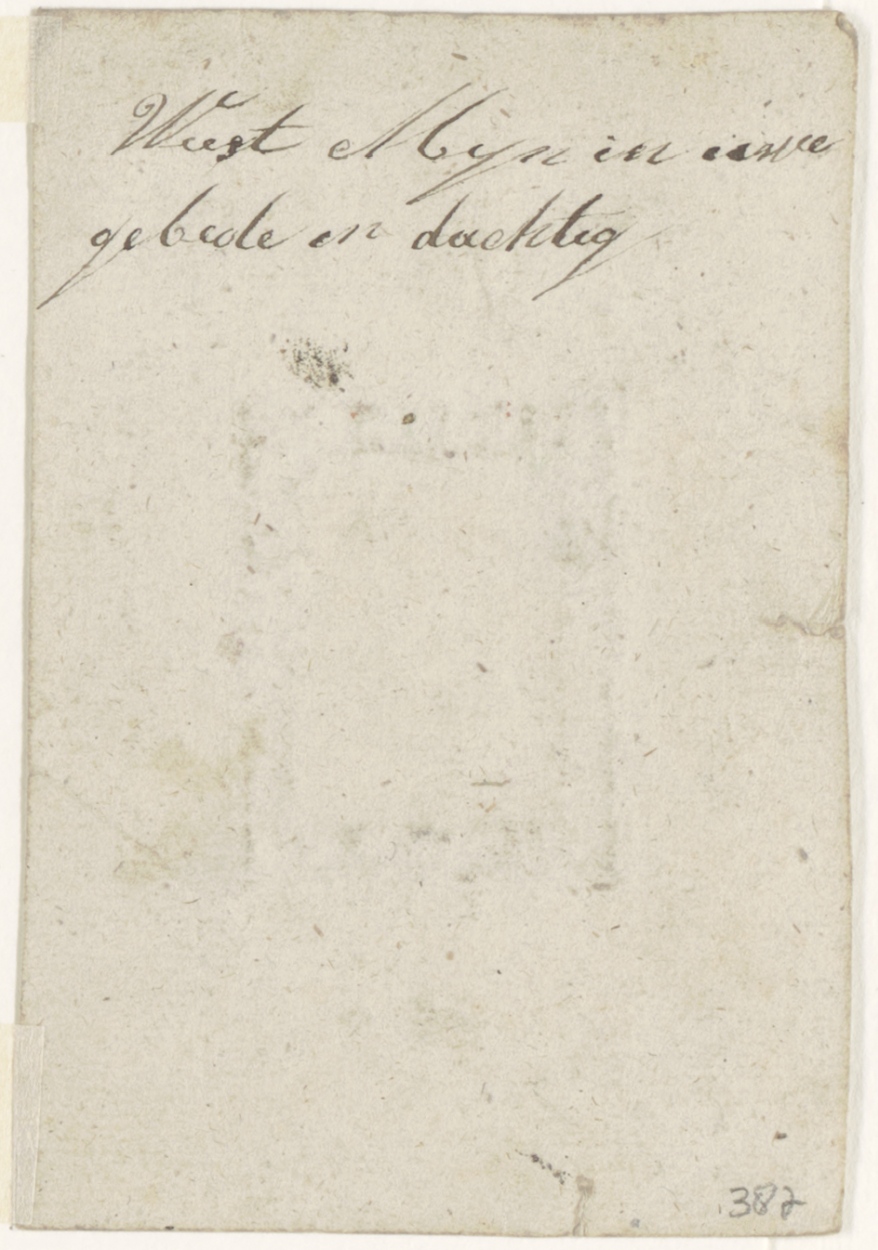 Weest Myn in uwe
gebede in dachtig
387